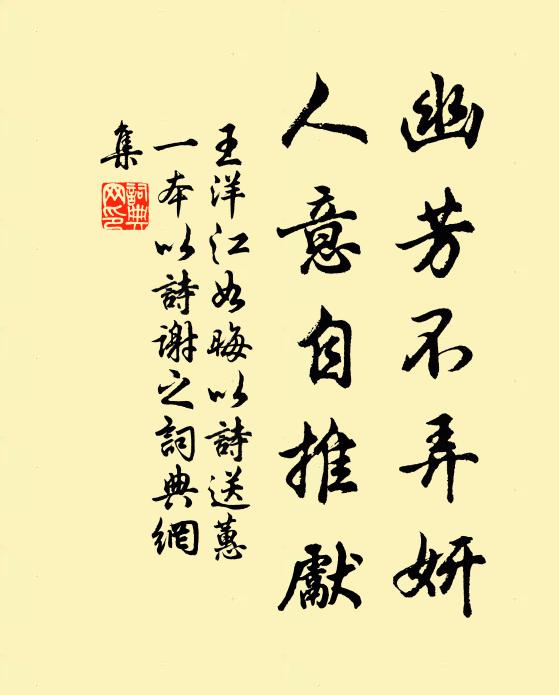 幽芳不弄妍
人意自推獻
王洋江如晦以詩送蕙
一本以詩謝之詞典網
集
詞典
网印